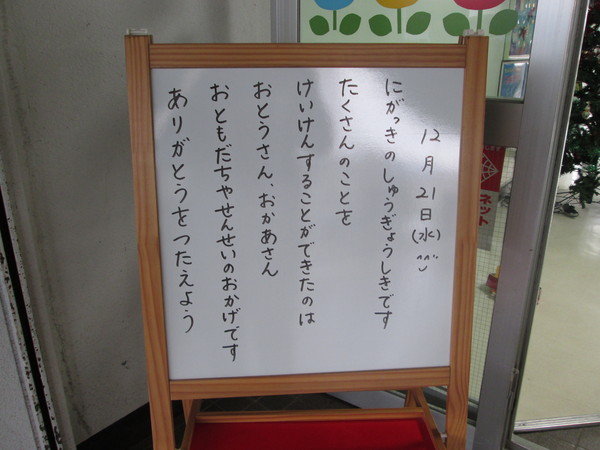 12月21日(水)
にがっきのしゅうぎょうしきです
たくさんのことを
けいけんすることができたのは
おとうさん、おかあさん
おともだちやせんせいのおかげです
ありがとうをつたえよう
ネット